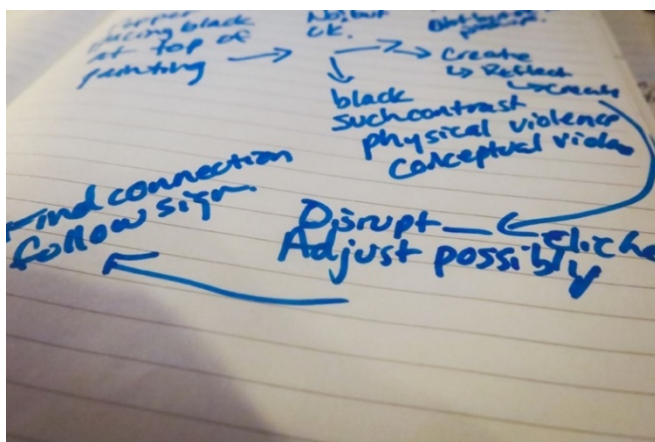 placing black
at top of
painting
No, but
Create
Reflect
Create
black
such contrast
physical violence
conceptual
Find connection
follow sign.
Disrupt
Cliche
Adjust possibly